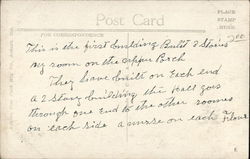 Post Card
PLACE
STAMP
HERE
FOR CORRESPONDENCE
This is the first building Built 2 Stories
my room on the upper Porch
They have built on Each end
a 2 Story building the Hall goes
through one End to the other rooms
on each side a nurse on each Floor